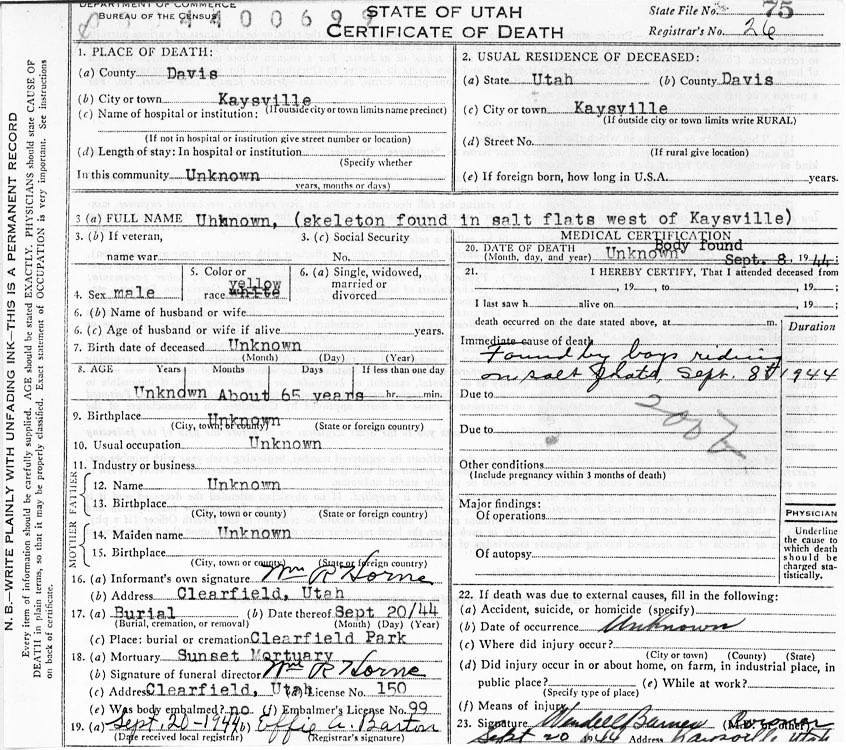 DEPARTMENT OF COMMERCE
BUREAU OF THE CENSUS
STATE OF UTAH
CERTIFICATE OF DEATH
State File No. 75
Registrar's No. 26
N. B.—WRITE PLAINLY WITH UNFADING INK—THIS IS A PERMANENT RECORD
Every item of information should be carefully supplied. AGE should be stated EXACTLY. PHYSICIANS should state CAUSE OF
DEATH in plain terms, so that it may be properly classified. Exact statement of OCCUPATION is very important. See instructions
on back of certificate.
1. PLACE OF DEATH:
(a) County Davis
(b) City or town Kaysville
(If outside city or town limits name precinct)
(c) Name of hospital or institution:
(If not in hospital or institution give street number or location)
(d) Length of stay: In hospital or institution
(Specify whether
In this community Unknown
years, months or days)
2. USUAL RESIDENCE OF DECEASED:
(a) State Utah (b) County Davis
(c) City or town Kaysville
(If outside city or town limits write RURAL)
(d) Street No.
(If rural give location)
(e) If foreign born, how long in U.S.A. years.
3 (a) FULL NAME Unknown, (skeleton found in salt flats west of Kaysville)
3. (b) If veteran,
name war
3. (c) Social Security
No.
4. Sex male
5. Color or
race yellow white
6. (a) Single, widowed,
married or
divorced
6. (b) Name of husband or wife
6. (c) Age of husband or wife if alive years.
7. Birth date of deceased Unknown
(Month) (Day) (Year)
8. AGE Years Months Days If less than one day
Unknown About 65 years hr. min.
9. Birthplace Unknown
(City, town, or county) (State or foreign country)
10. Usual occupation Unknown
11. Industry or business
FATHER
12. Name Unknown
13. Birthplace
(City, town, or county) (State or foreign country)
MOTHER
14. Maiden name Unknown
15. Birthplace
(City, town or county) (State or foreign country)
16. (a) Informant's own signature Wm R Horne
(b) Address Clearfield, Utah
17. (a) Burial (b) Date thereof Sept 20/44
(Burial, cremation, or removal) (Month) (Day) (Year)
(c) Place: burial or cremation Clearfield Park
18. (a) Mortuary Sunset Mortuary
(b) Signature of funeral director Wm R Horne
(c) Address Clearfield, Utah License No. 150
(e) Was body embalmed? no (f) Embalmer's License No. 99
19. (a) Sept. 20-1944 (b) Effie A. Barton
(Date received local registrar) (Registrar's signature)
MEDICAL CERTIFICATION
20. DATE OF DEATH Body found
(Month, day, and year) Unknown Sept. 8, 1944
21. I HEREBY CERTIFY, That I attended deceased from
, 19 , to , 19 ;
I last saw h alive on , 19 ;
death occurred on the date stated above, at m.
Duration
Immediate cause of death
Found by boys riding
on salt flats, Sept. 8th 1944
Due to
2002
Due to
Other conditions
(Include pregnancy within 3 months of death)
Major findings:
Of operations
Of autopsy
PHYSICIAN
Underline
the cause to
which death
should be
charged sta-
tistically.
22. If death was due to external causes, fill in the following:
(a) Accident, suicide, or homicide (specify)
(b) Date of occurrence Unknown
(c) Where did injury occur?
(City or town) (County) (State)
(d) Did injury occur in or about home, on farm, in industrial place, in
public place? (e) While at work?
(Specify type of place)
(f) Means of injury
23. Signature Wendell
Sept 20 1944 Address Utah